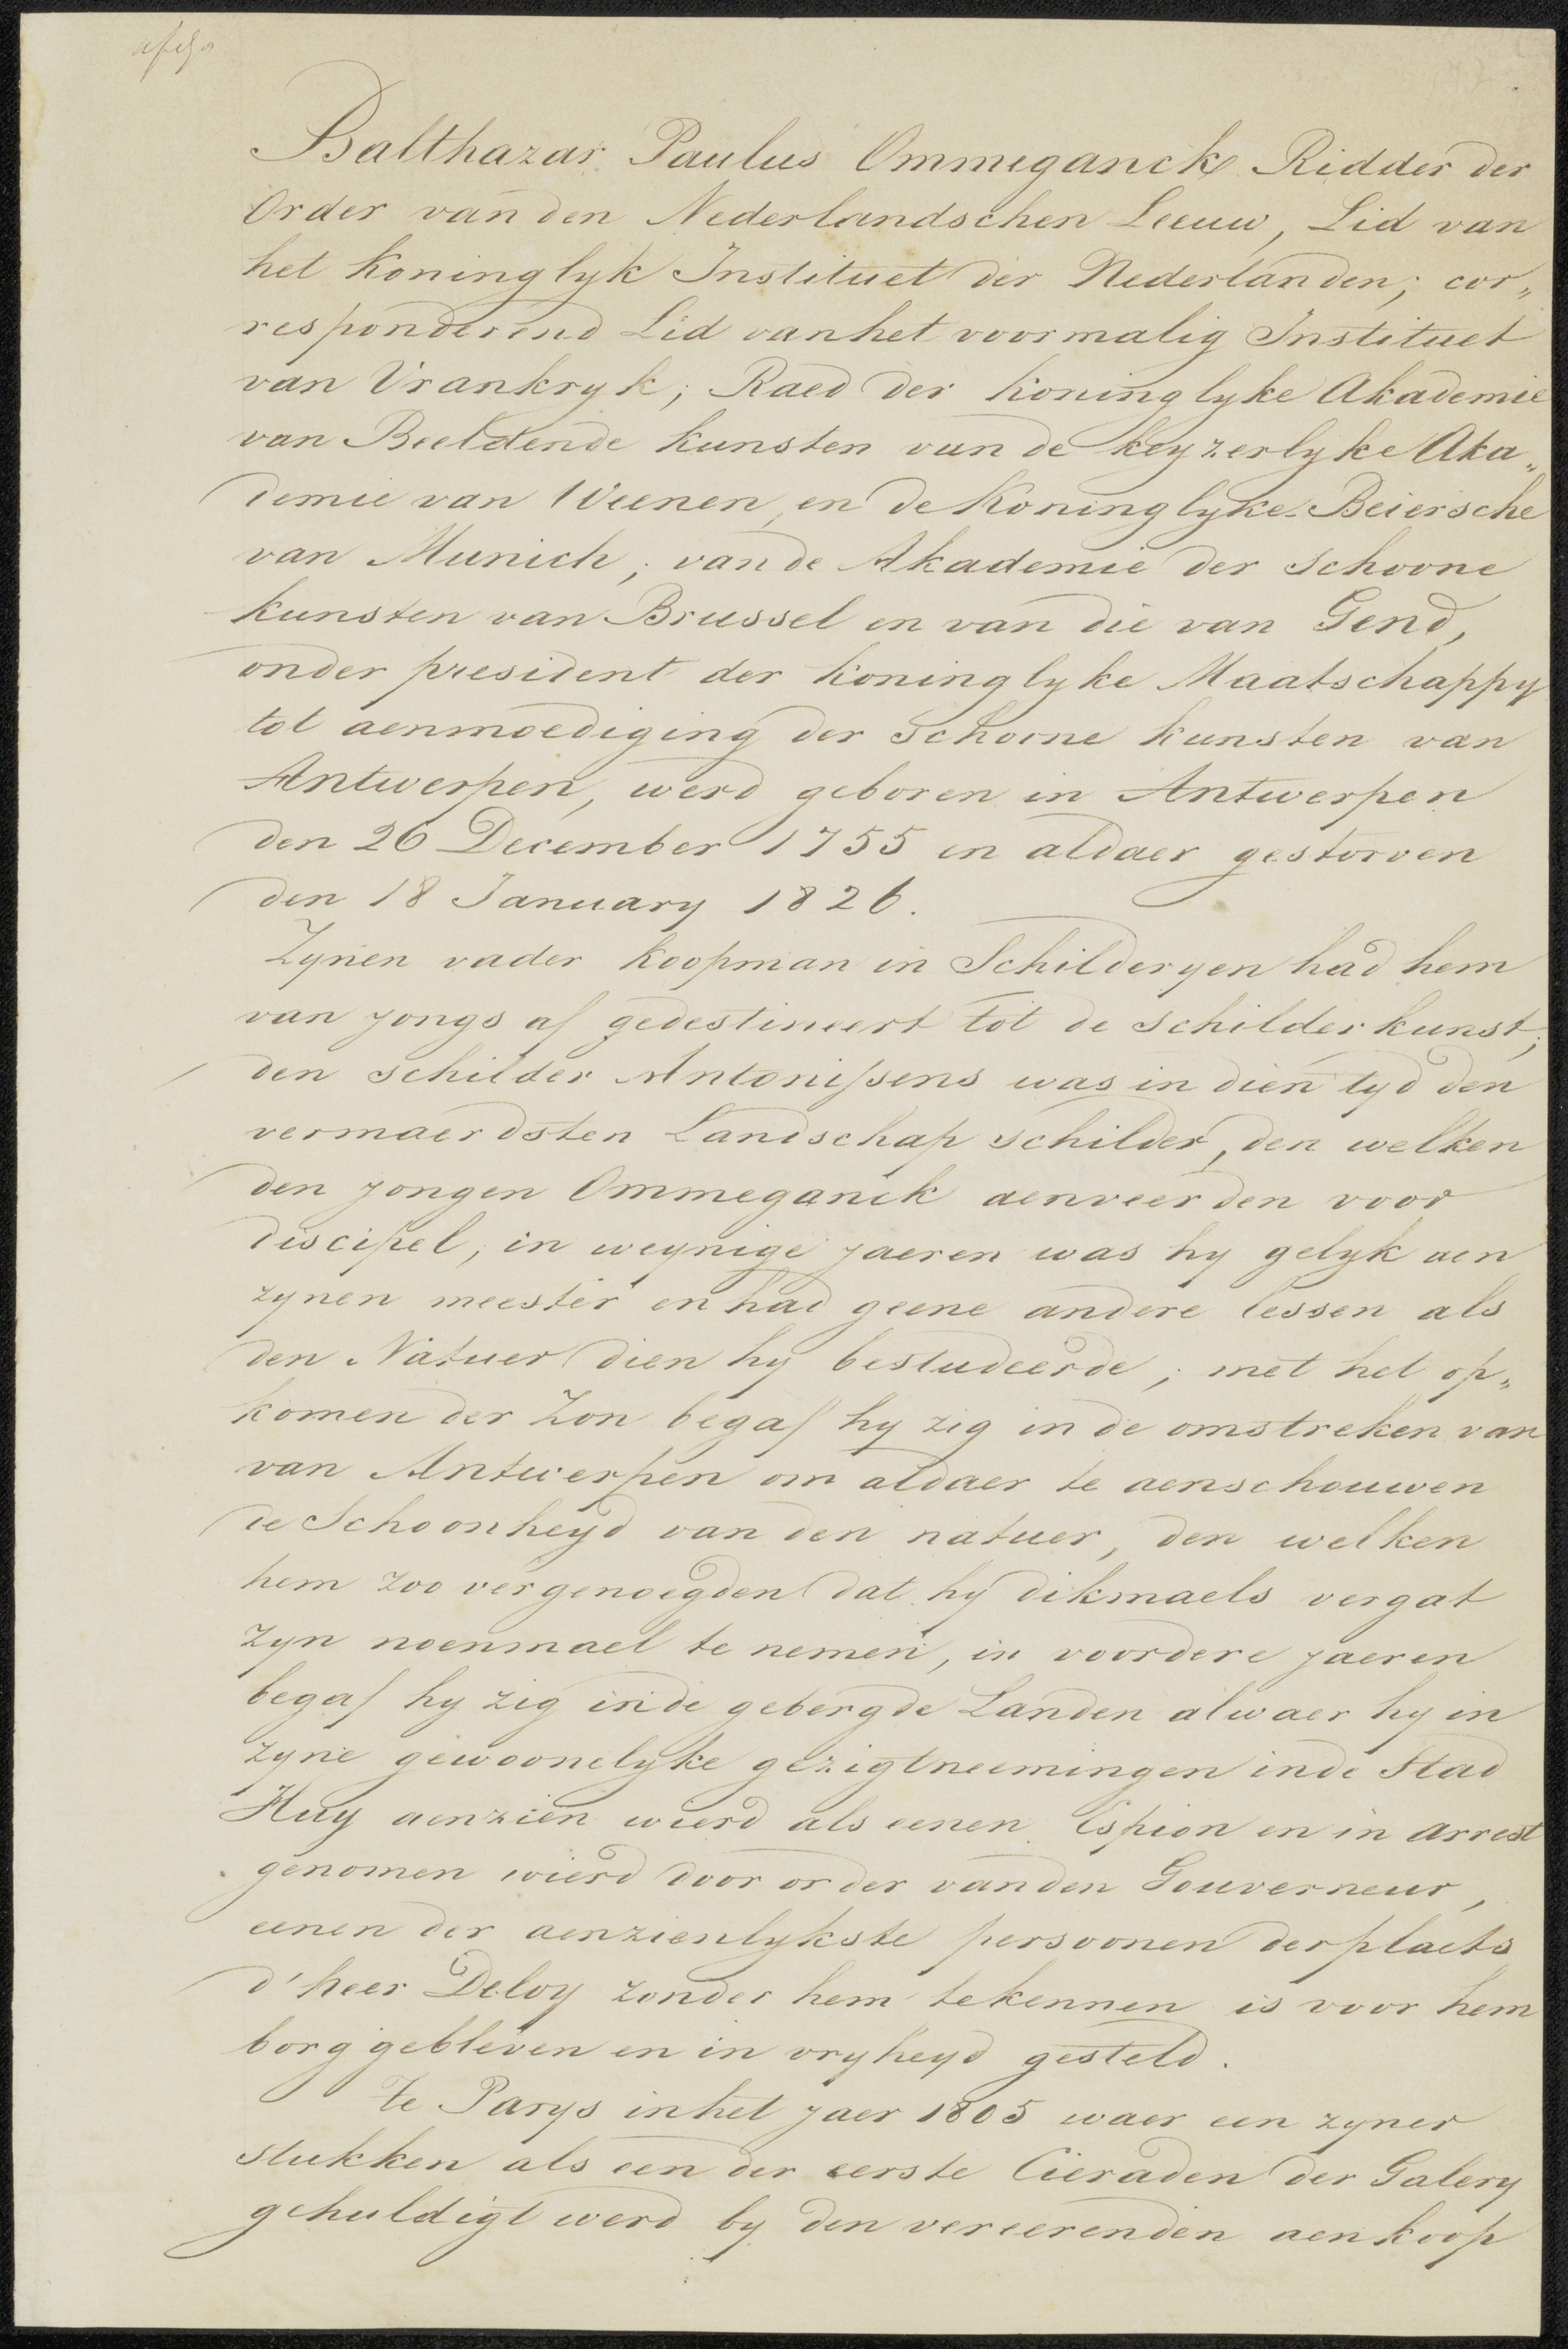 Balthazar Paulus Ommeganck Ridder der
Order van den Nederlandschen Leeuw, Lid van
het koninglyk Instituet der Nederlanden; cor„
responderend Lid van het voormalig Instituet
van Vrankryk; Raed der koninglyke Akademie
van Beeldende kunsten van de keyzerlyke Aka„
demie van Weenen, en de Koninglyke Beiersche
van Munich; van de Akademie der schoone
kunsten van Brussel en van die van Gend,
onder president der koninglyke Maatschappy
tot aenmoediging der schoone kunsten van
Antwerpen, werd geboren in Antwerpen
den 26 December 1755 en aldaer gestorven
den 18 January 1826.
Zynen vader koopman in Schilderyen had hem
van jongs af gedestineert tot de schilderkunst;
den schilder Antonissens was in dien tyd den
vermaerdsten Landschap schilder, den welken
den jongen Ommeganck aenveerden voor
discipel, in weynige jaeren was hy gelyk aen
zynen meester en had geene andere lessen als
den Natuer dien hy bestudeerde; met het op„
komen der Zon begaf hy zig in de omstreken van
van Antwerpen om aldaer te aenschouwen
de Schoonheyd van den natuer, den welken
hem zoo vergenoegden dat hy dikmaels vergat
zyn noenmael te nemen, in voordere jaeren
begaf hy zig in de gebergde Landen alwaer hy in
zyne gewoonelyke gezigtneemingen in de Stad
Huy aenzien wierd als eenen Espion en in arrest
genomen wierd door order van den Gouverneur,
eenen der aenzienlykste persoonen der plaets
d'heer Deloy zonder hem te kennen is voor hem
borg gebleven en in vryheyd gesteld.
Te Parys in het jaer 1805 waer een zyner
stukken als een der eerste Cieraden der Galery
gehuldigt werd by den vereerenden aenkoop